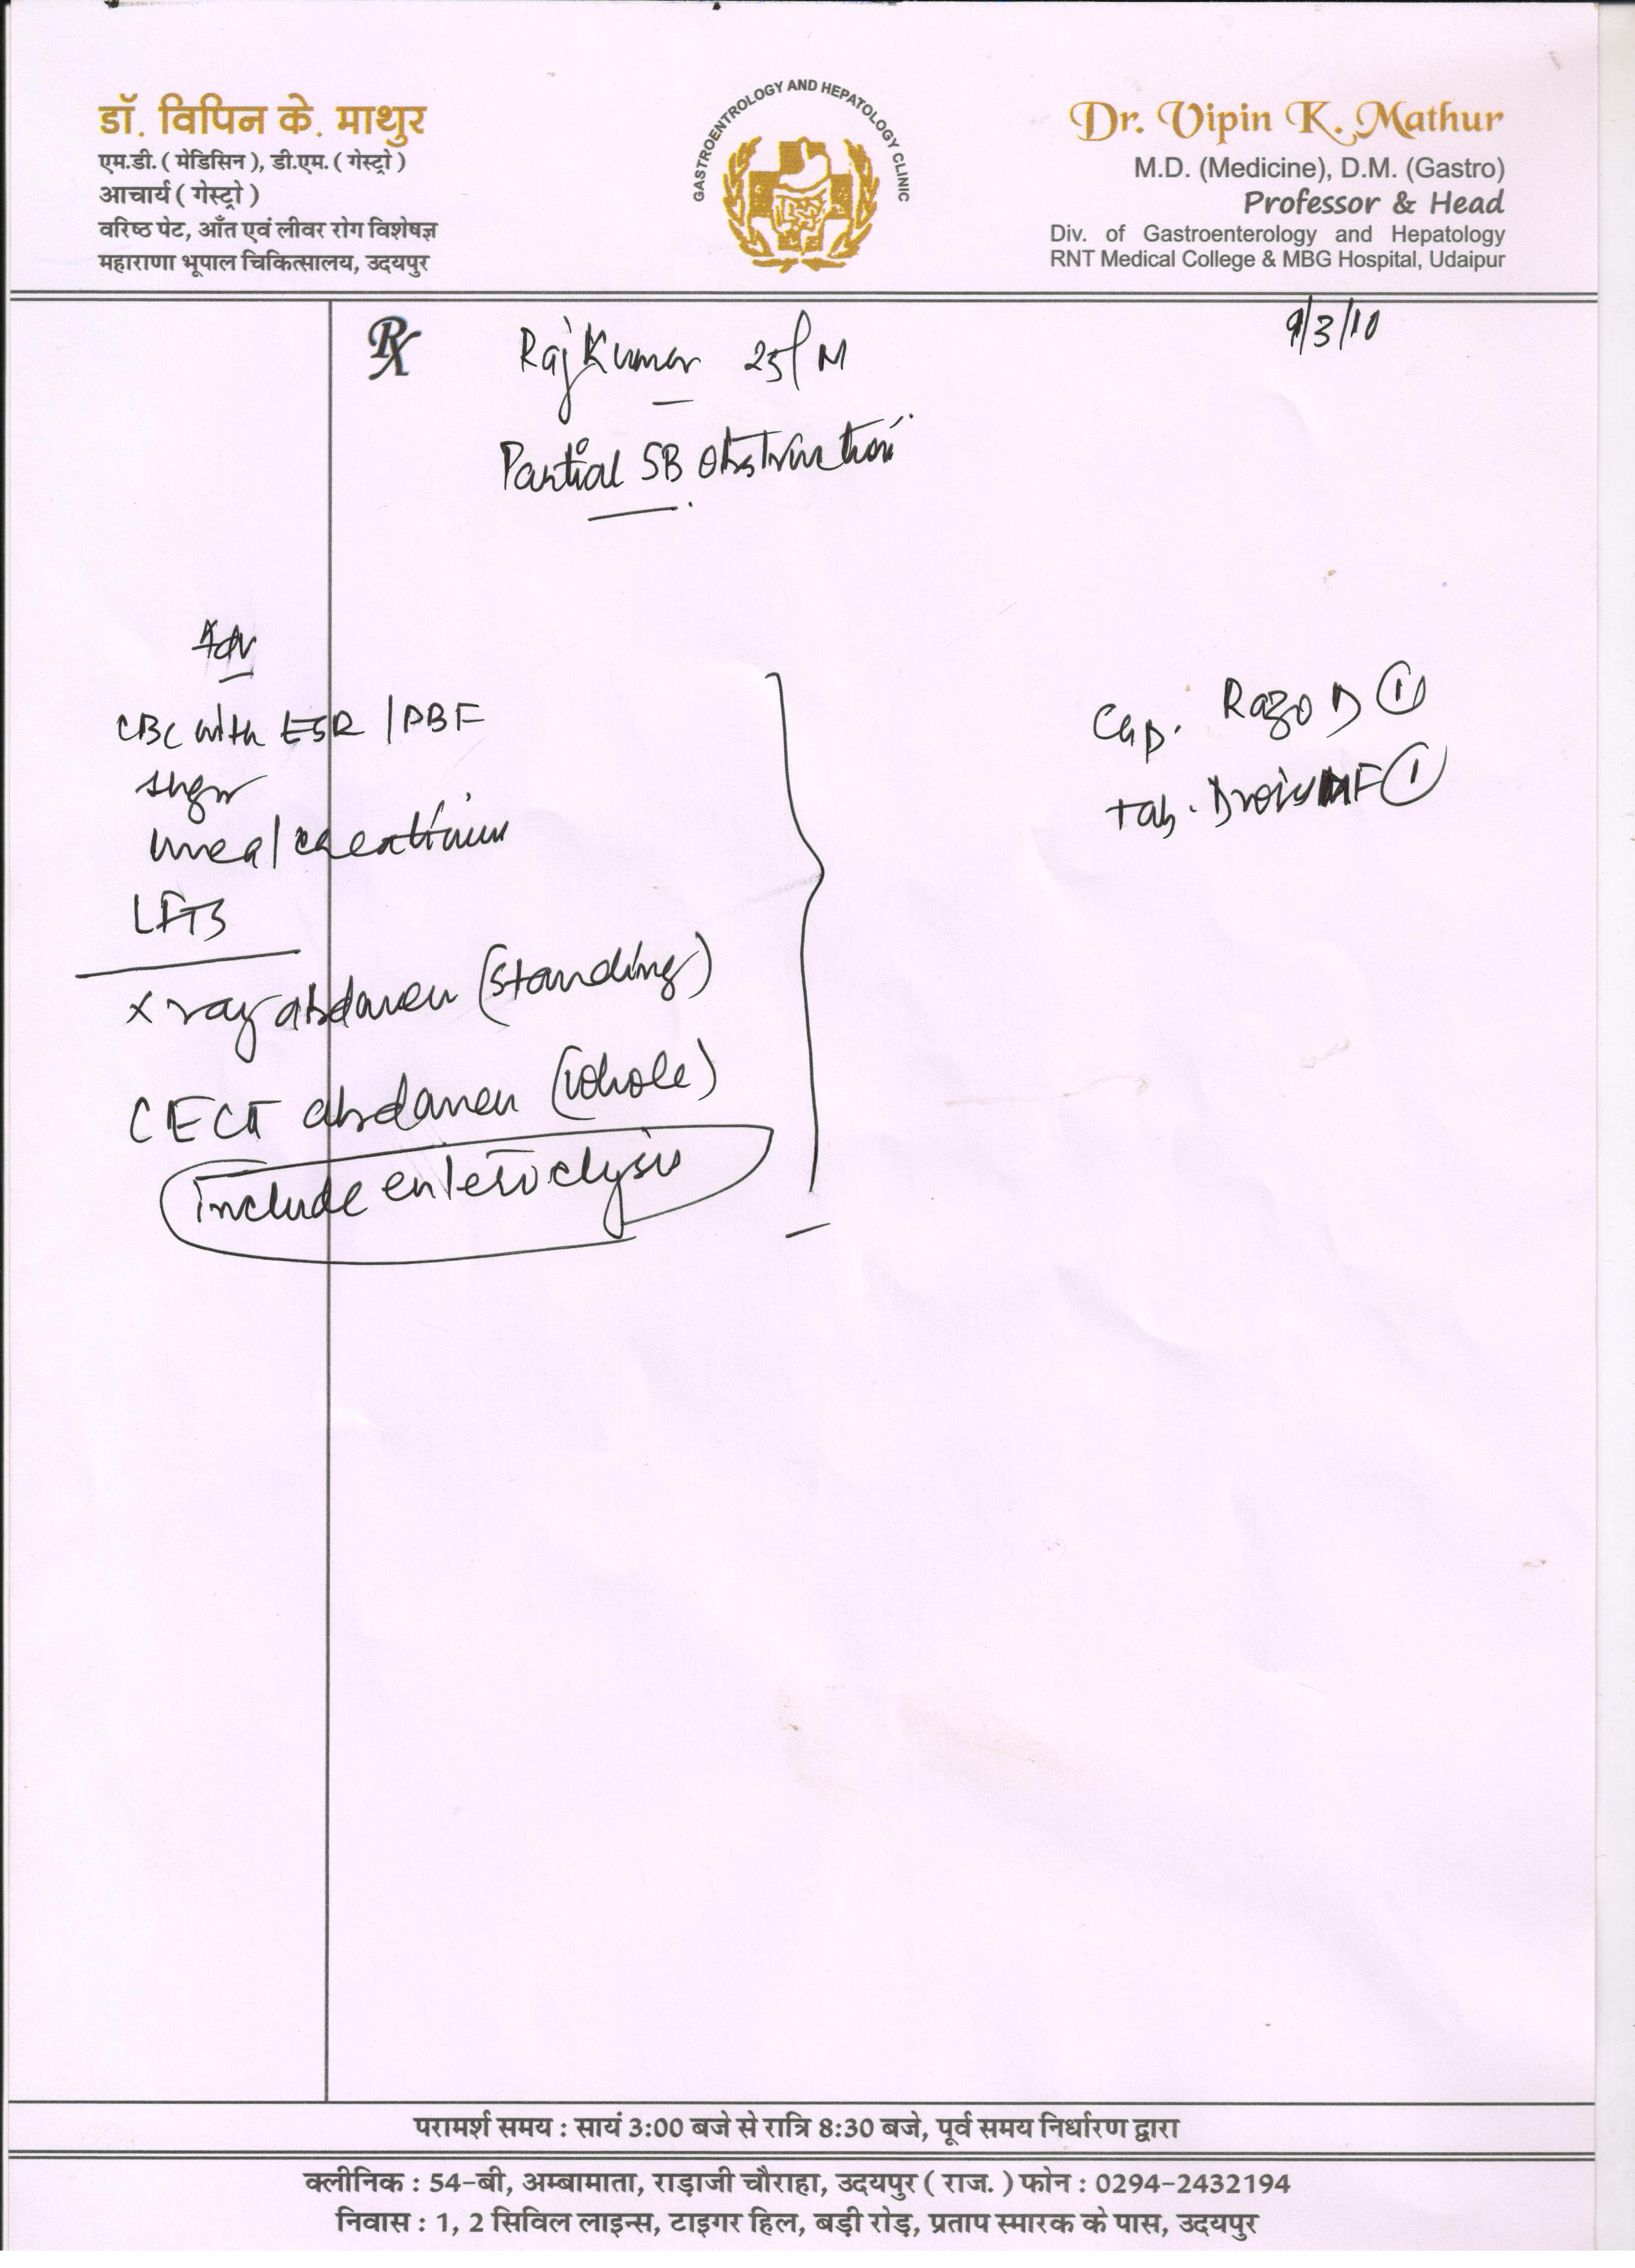 डॉ. विपिन के. माथुर
एम.डी. ( मेडिसिन ), डी.एम. ( गेस्ट्रो )
आचार्य ( गेस्ट्रो )
वरिष्ठ पेट, आँत एवं लीवर रोग विशेषज्ञ
महाराणा भूपाल चिकित्सालय, उदयपुर
GASTROENTROLOGY AND HEPATOLOGY CLINIC
Dr. Vipin K. Mathur
M.D. (Medicine), D.M. (Gastro)
Professor & Head
Div. of Gastroenterology and Hepatology
RNT Medical College & MBG Hospital, Udaipur
9/3/10
Rx
Raj Kumar 25/M
Partial SB Obstruction
Adv
CBC with ESR / PBF
sugar
urea / creatinine
LFTs
X ray abdomen (standing)
CECT abdomen (whole)
include enteroclysis
Cap. Razo D 1
Tab. MF 1
परामर्श समय : सायं 3:00 बजे से रात्रि 8:30 बजे, पूर्व समय निर्धारण द्वारा
क्लीनिक : 54-बी, अम्बामाता, राड़ाजी चौराहा, उदयपुर ( राज. ) फोन : 0294-2432194
निवास : 1, 2 सिविल लाइन्स, टाइगर हिल, बड़ी रोड़, प्रताप स्मारक के पास, उदयपुर